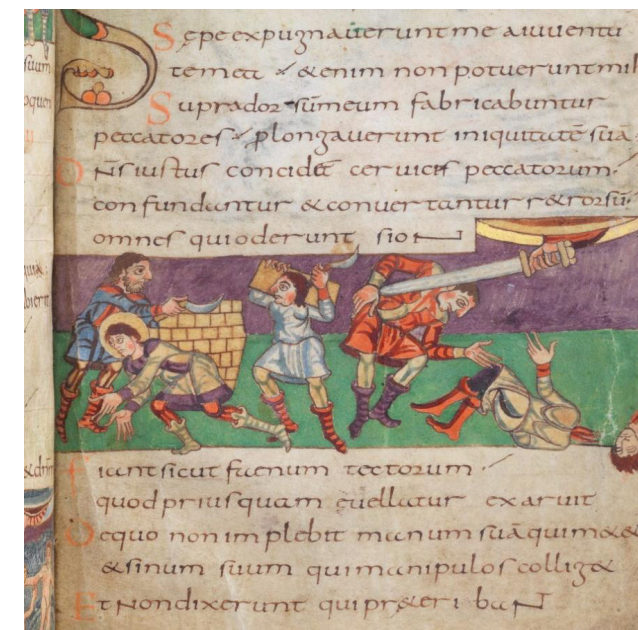 Sepe expugnaverunt me a iuventu
te mea & enim non potuerunt mi
Supra dorsū meum fabricabuntur
peccatores plongaverunt iniquitatē suā
Dn̄s iustus concidet cervices peccatorum
confundantur & convertantur r&rorsū
omnes qui oderunt sion
fiant sicut faenum tectorum
quod priusquam evellatur exaruit
De quo non implebit manum suā qui m&
& sinum suum qui manipulos collig&
Et non dixerunt qui pr&eriban